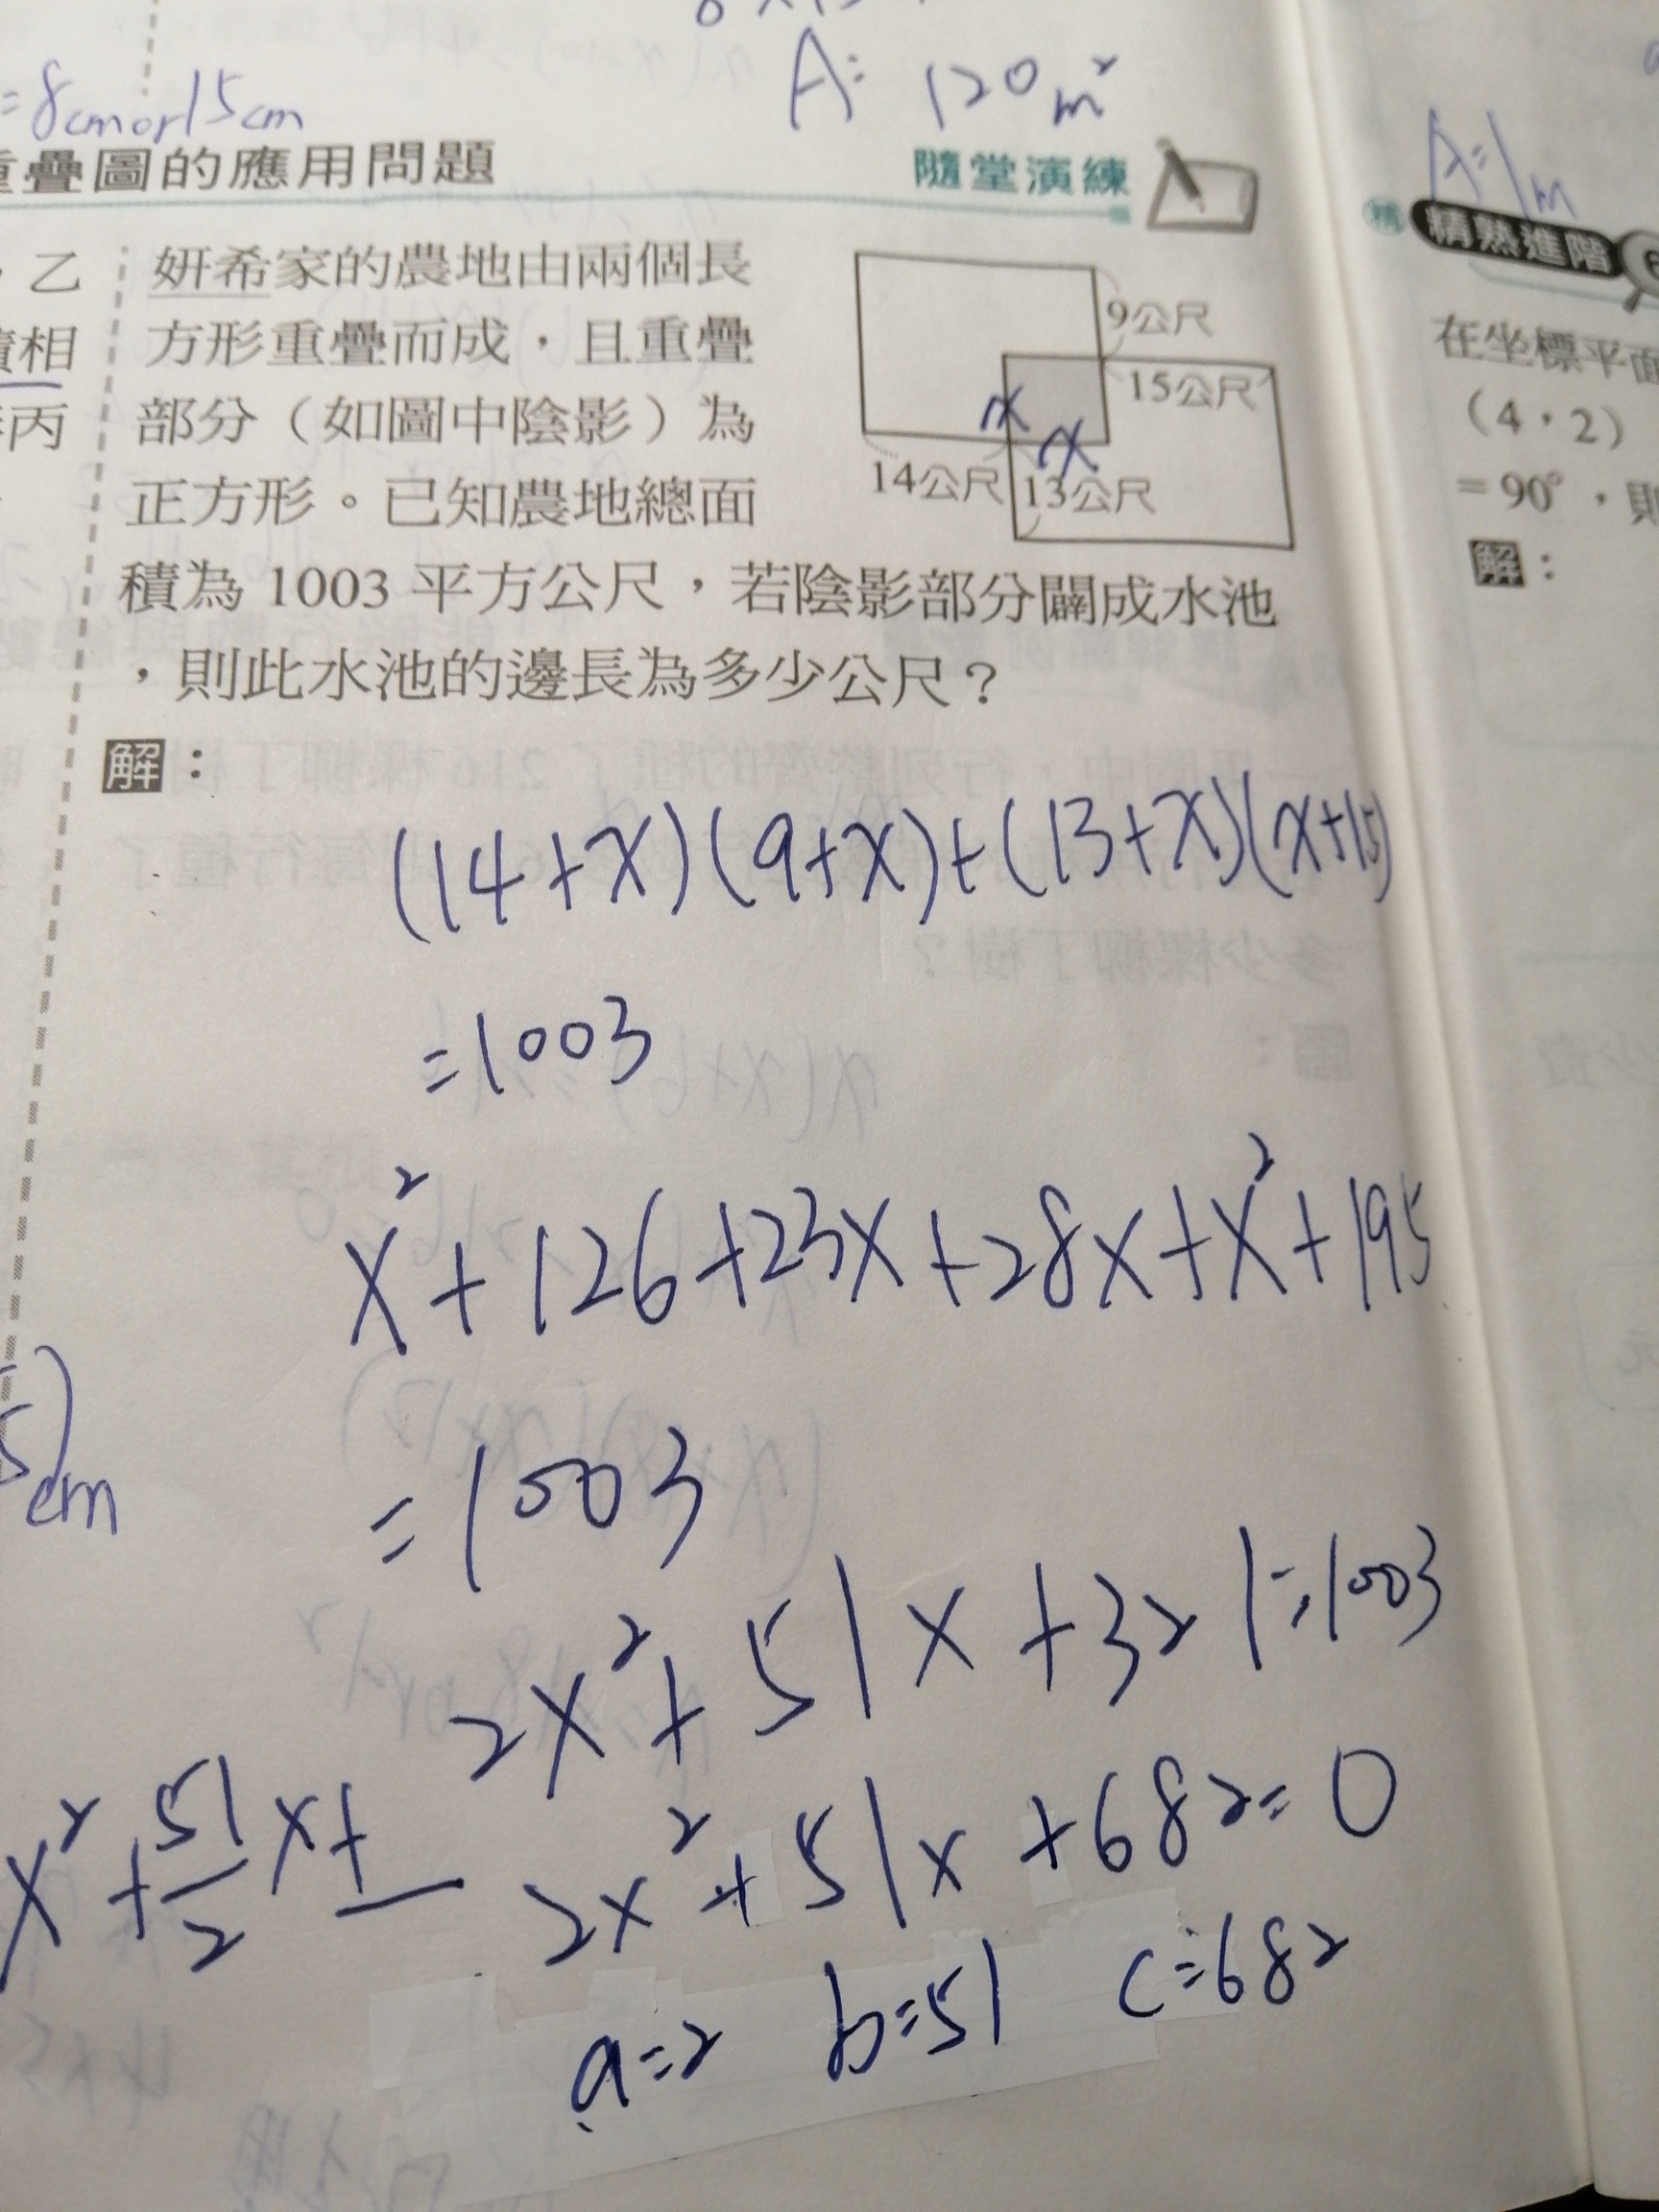 A= 120m²
=8cmor15cm
重疊圖的應用問題
隨堂演練
，乙
相
丙
妍希家的農地由兩個長
方形重疊而成，且重疊
部分（如圖中陰影）為
正方形。已知農地總面
積為 1003 平方公尺，若陰影部分闢成水池
，則此水池的邊長為多少公尺？
9公尺
15公尺
x
x
14公尺
13公尺
解：
(14+x)(9+x)+(13+x)(x+15)
=1003
x²+126+23x+28x+x²+195
=1003
5)cm
2x²+51x+321=1003
x²+51/2 x+
2x²+51x+682=0
a=2 b=51 c=682
A=1m
精熟進階
在坐標平面
（4，2）
=90°，則
解：